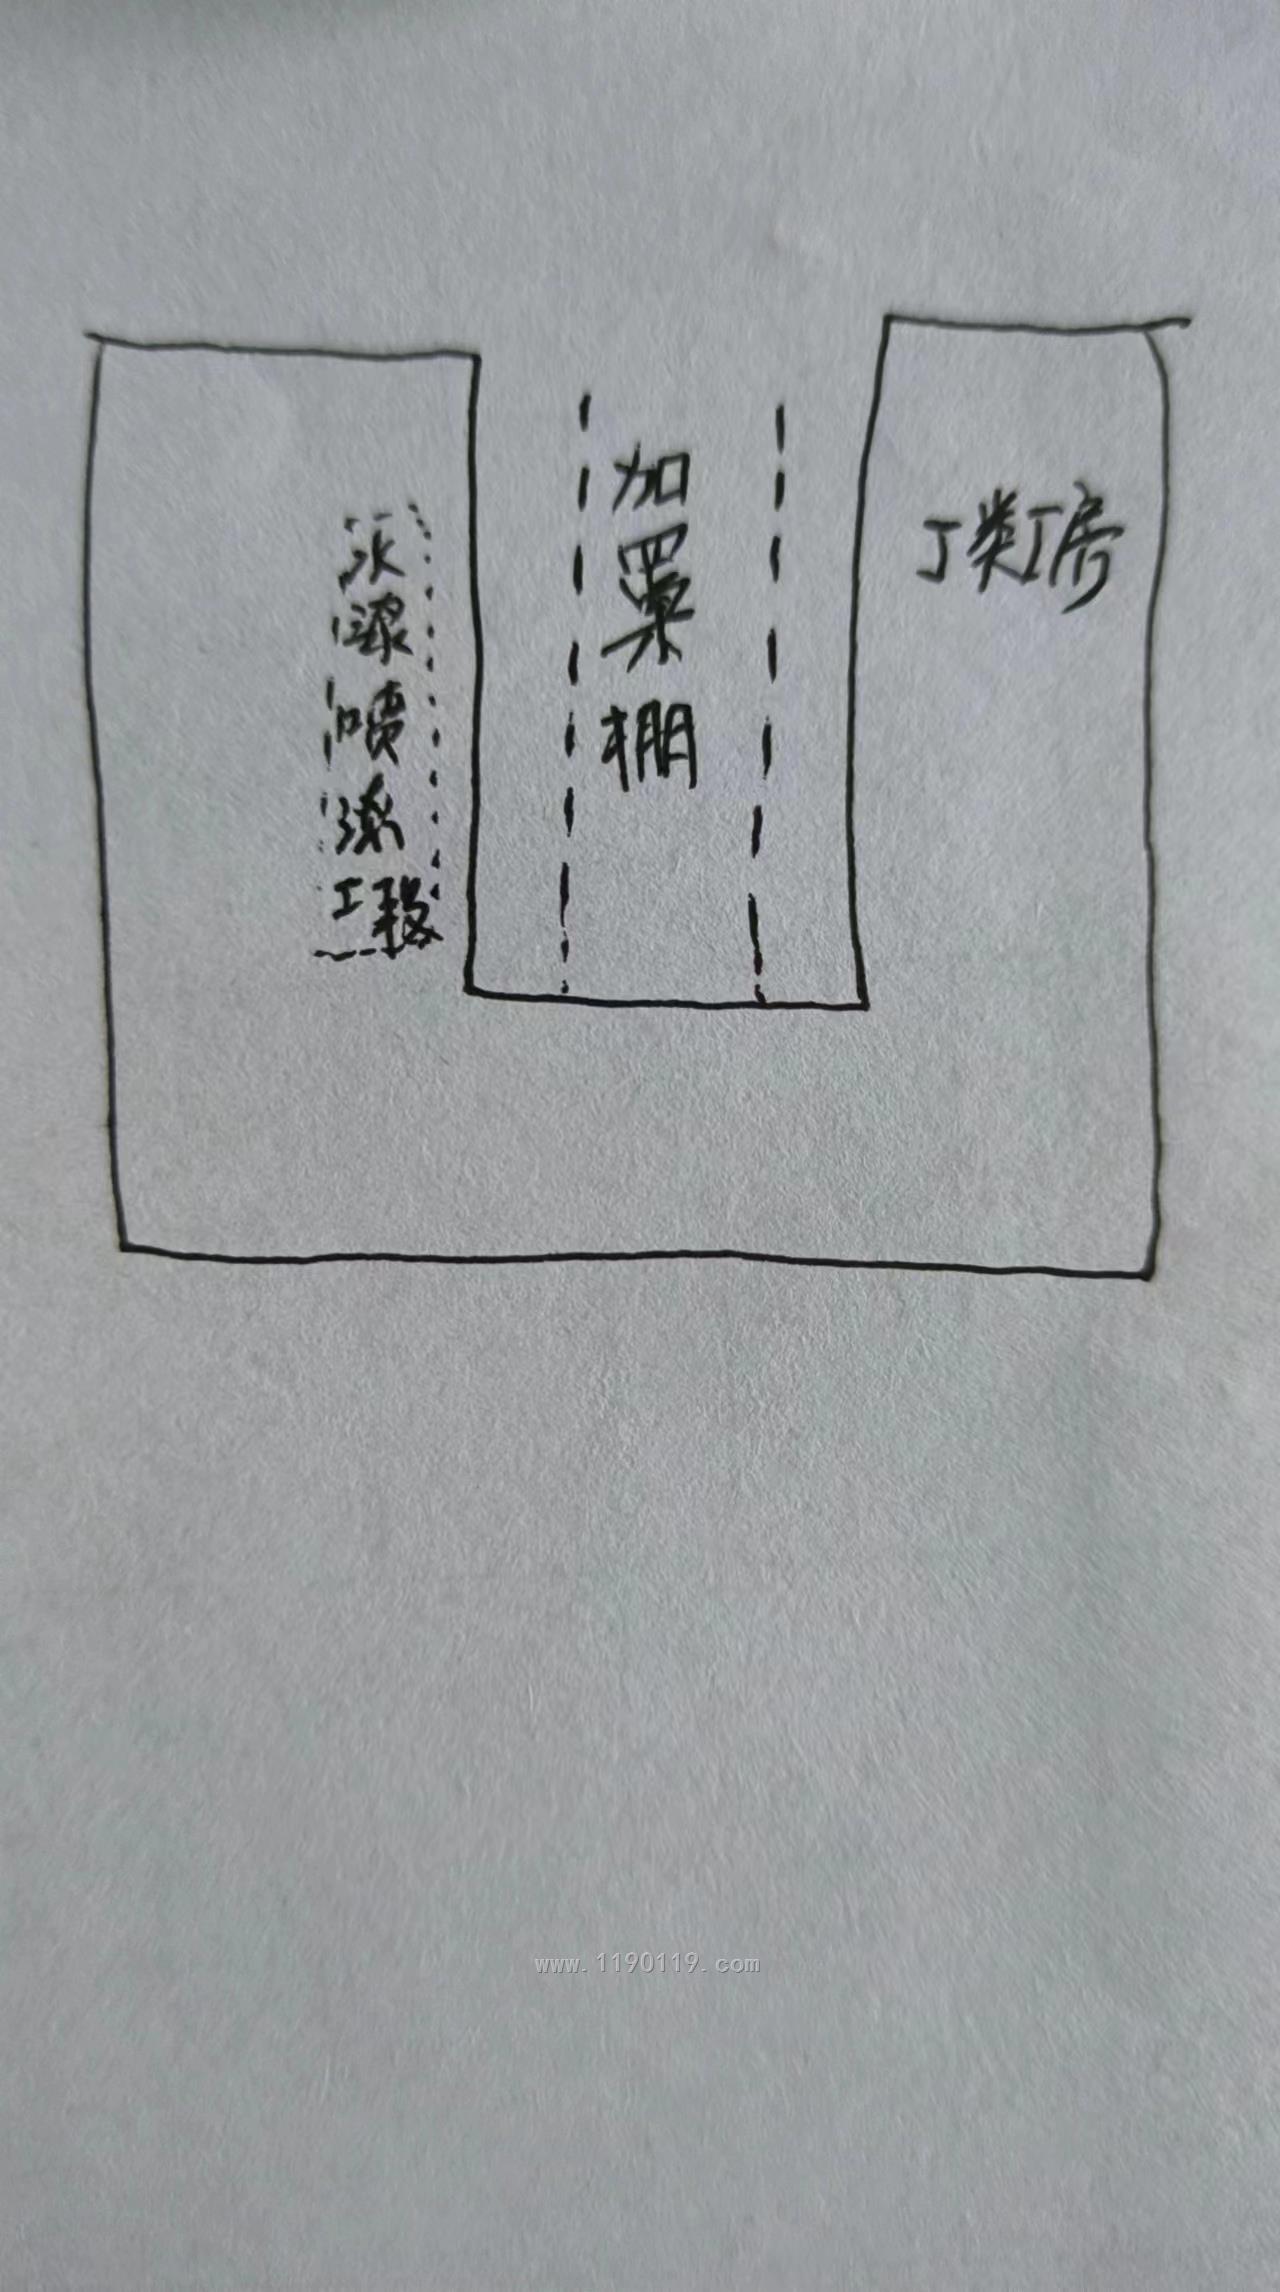 水漆喷漆工段
加罩棚
丁类厂房
www.1190119.com